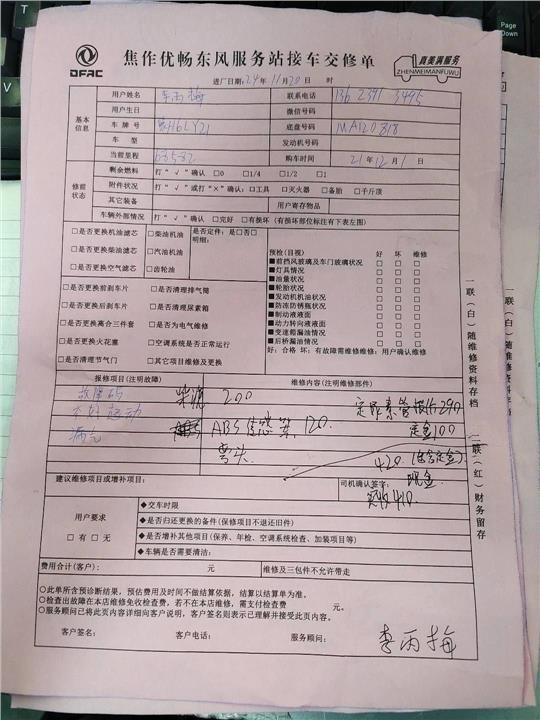 DFAC
焦作优畅东风服务站接车交修单
真美满服务
ZHENMEIMANFUWU
进厂日期:24年11月20日 时
基本信息
用户姓名 李丙梅 联系电话
用户生日 微信号码
车牌号 底盘号码 MA120818
车型 发动机号码
当前里程 购车时间 21年12月1日
修前状态
剩余燃料 打“√”确认 □0 □1/4 □1/2 □1
附件状况 打“√”或打“×”确认:□工具 □灭火器 □备胎 □千斤顶
其它装备 用户寄存物品
车辆外部情况 打“√”确认 □完好 □有损坏(有损部位标注有下表左图)
□是否更换机油滤芯 □柴油机油 是否定件:是□否□
□是否更换柴油滤芯 □汽油机油 明细:
□是否更换空气滤芯 □齿轮油
□是否更换前刹车片 □是否清理排气筒
□是否更换后刹车片 □是否清理尿素箱
□是否更换离合三件套 □是否为电气维修
□是否更换火花塞 □空调系统是否正常运行
□是否清理节气门 □其它项目维修及更换
预检(目视) 好 坏 维修
■前挡风玻璃及车门玻璃状况 □ □ □
■灯具情况 □ □ □
■油量状况 □ □ □
■轮胎状况 □ □ □
■发动机机油状况 □ □ □
■防冻防锈瓶状况 □ □ □
■制动液液面 □ □ □
■动力转向液液面 □ □ □
■变速箱漏油情况 □ □ □
■后桥漏油情况 □ □ □
好:合格 坏:有故障需维修维修:用户确认维修
报修项目(注明故障) 维修内容(注明维修部件)
故障码 200
不好起动 ABS传感器,120.
漏气 弯头
定尿素管报价290
定金100
420.(包含定金)
现金
实收410
建议维修项目或增补项目: 司机确认签字:
用户要求
□有 □无
◆交车时限
◆是否归还更换的备件(保修项目不退还旧件)
◆是否增补其他项目(保养、年检、空调系统检查、加装项目等)
◆车辆是否需要清洁:
费用合计(客户): 元 维修及三包件不允许带走
○此单所含预诊断结果,预估费用及时间不做结算依据,结算以结算单为准。
○检查出故障在本店维修免收检查费,若不在本店维修,需支付检查费 元。
○服务顾问已将此页内容详细向客户说明,客户签名则表示已理解并接受此页内容。
客户签名: 客户电话: 服务顾问: 李丙梅
一联(白)随维修资料存档
二联(红)财务留存